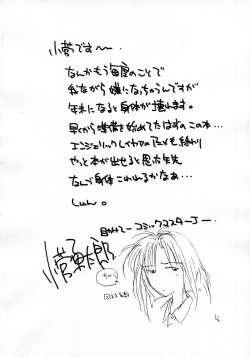 小菅です〜。
なんかもう毎度のことで
我ながら嫌になっちゃうんですが
年末になると身体が壊れます。
早くから準備を始めてたはずのこの本…
エンジェリックレイヤーのアニメも終わり
やっと本が出せると思った矢先
なんで身体こわれるかなぁ…
しゅん。
助けてーコミックマスターJー